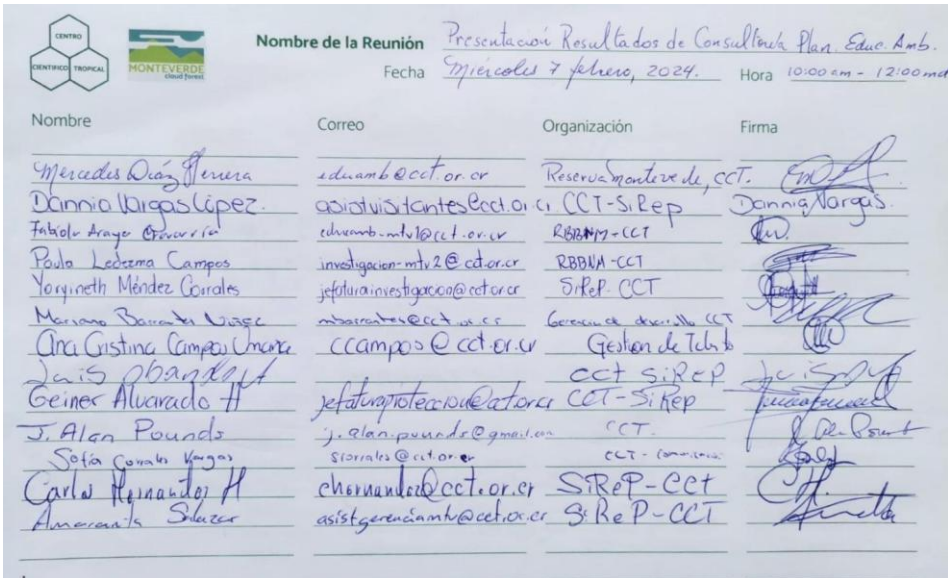 CENTRO
CIENTIFICO TROPICAL
MONTEVERDE
cloud forest
Nombre de la Reunión Presentación Resultados de Consultoría Plan. Educ. Amb.
Fecha Miércoles 7 febrero, 2024. Hora 10:00 am - 12:00 md
Nombre Correo Organización Firma
Mercedes Díaz Herrera eduamb@cct.or.cr Reserva Monteverde, CCT.
Dannia Vargas López. asistvisitantes@cct.or.cr CCT-SiRep Dannia Vargas.
Fabiola Araya eduamb-mtv1@cct.or.cr RBBNM-CCT
Paula Ledezma Campos investigacion-mtv2@cct.or.cr RBBNM-CCT
Yoryineth Méndez Corrales jefaturainvestigacion@cct.or.cr SiReP-CCT
Mariano Barrantes mbarrantes@cct.or.cr Gerencia de desarrollo CCT
Ana Cristina Campos Umaña ccampos@cct.or.cr Gestion de
Luis Obando CCT SiReP
Geiner Alvarado H jefaturaproteccion@cct.or.cr CCT-SiRep
J. Alan Pounds j.alan.pounds@gmail.com CCT.
Sofía Corrales Vargas scorrales@cct.or.cr CCT-
Carlos Hernandez H chernandez@cct.or.cr SiReP-CCT
Amaranta Salazar asistgerenciamtv@cct.or.cr SiReP-CCT